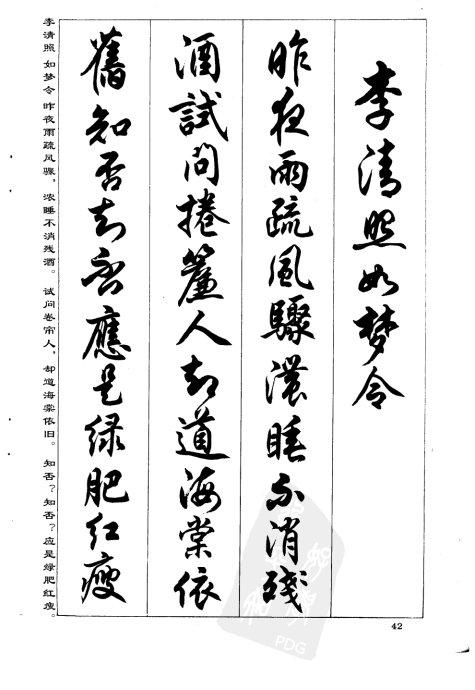 李清照如梦令
昨夜雨疏風驟濃睡不消殘
酒試問捲簾人却道海棠依
舊知否知否應是绿肥红瘦
李清照 如梦令 昨夜雨疏风骤，浓睡不消残酒。试问卷帘人，却道海棠依旧。知否？知否？应是绿肥红瘦。
42
PDG